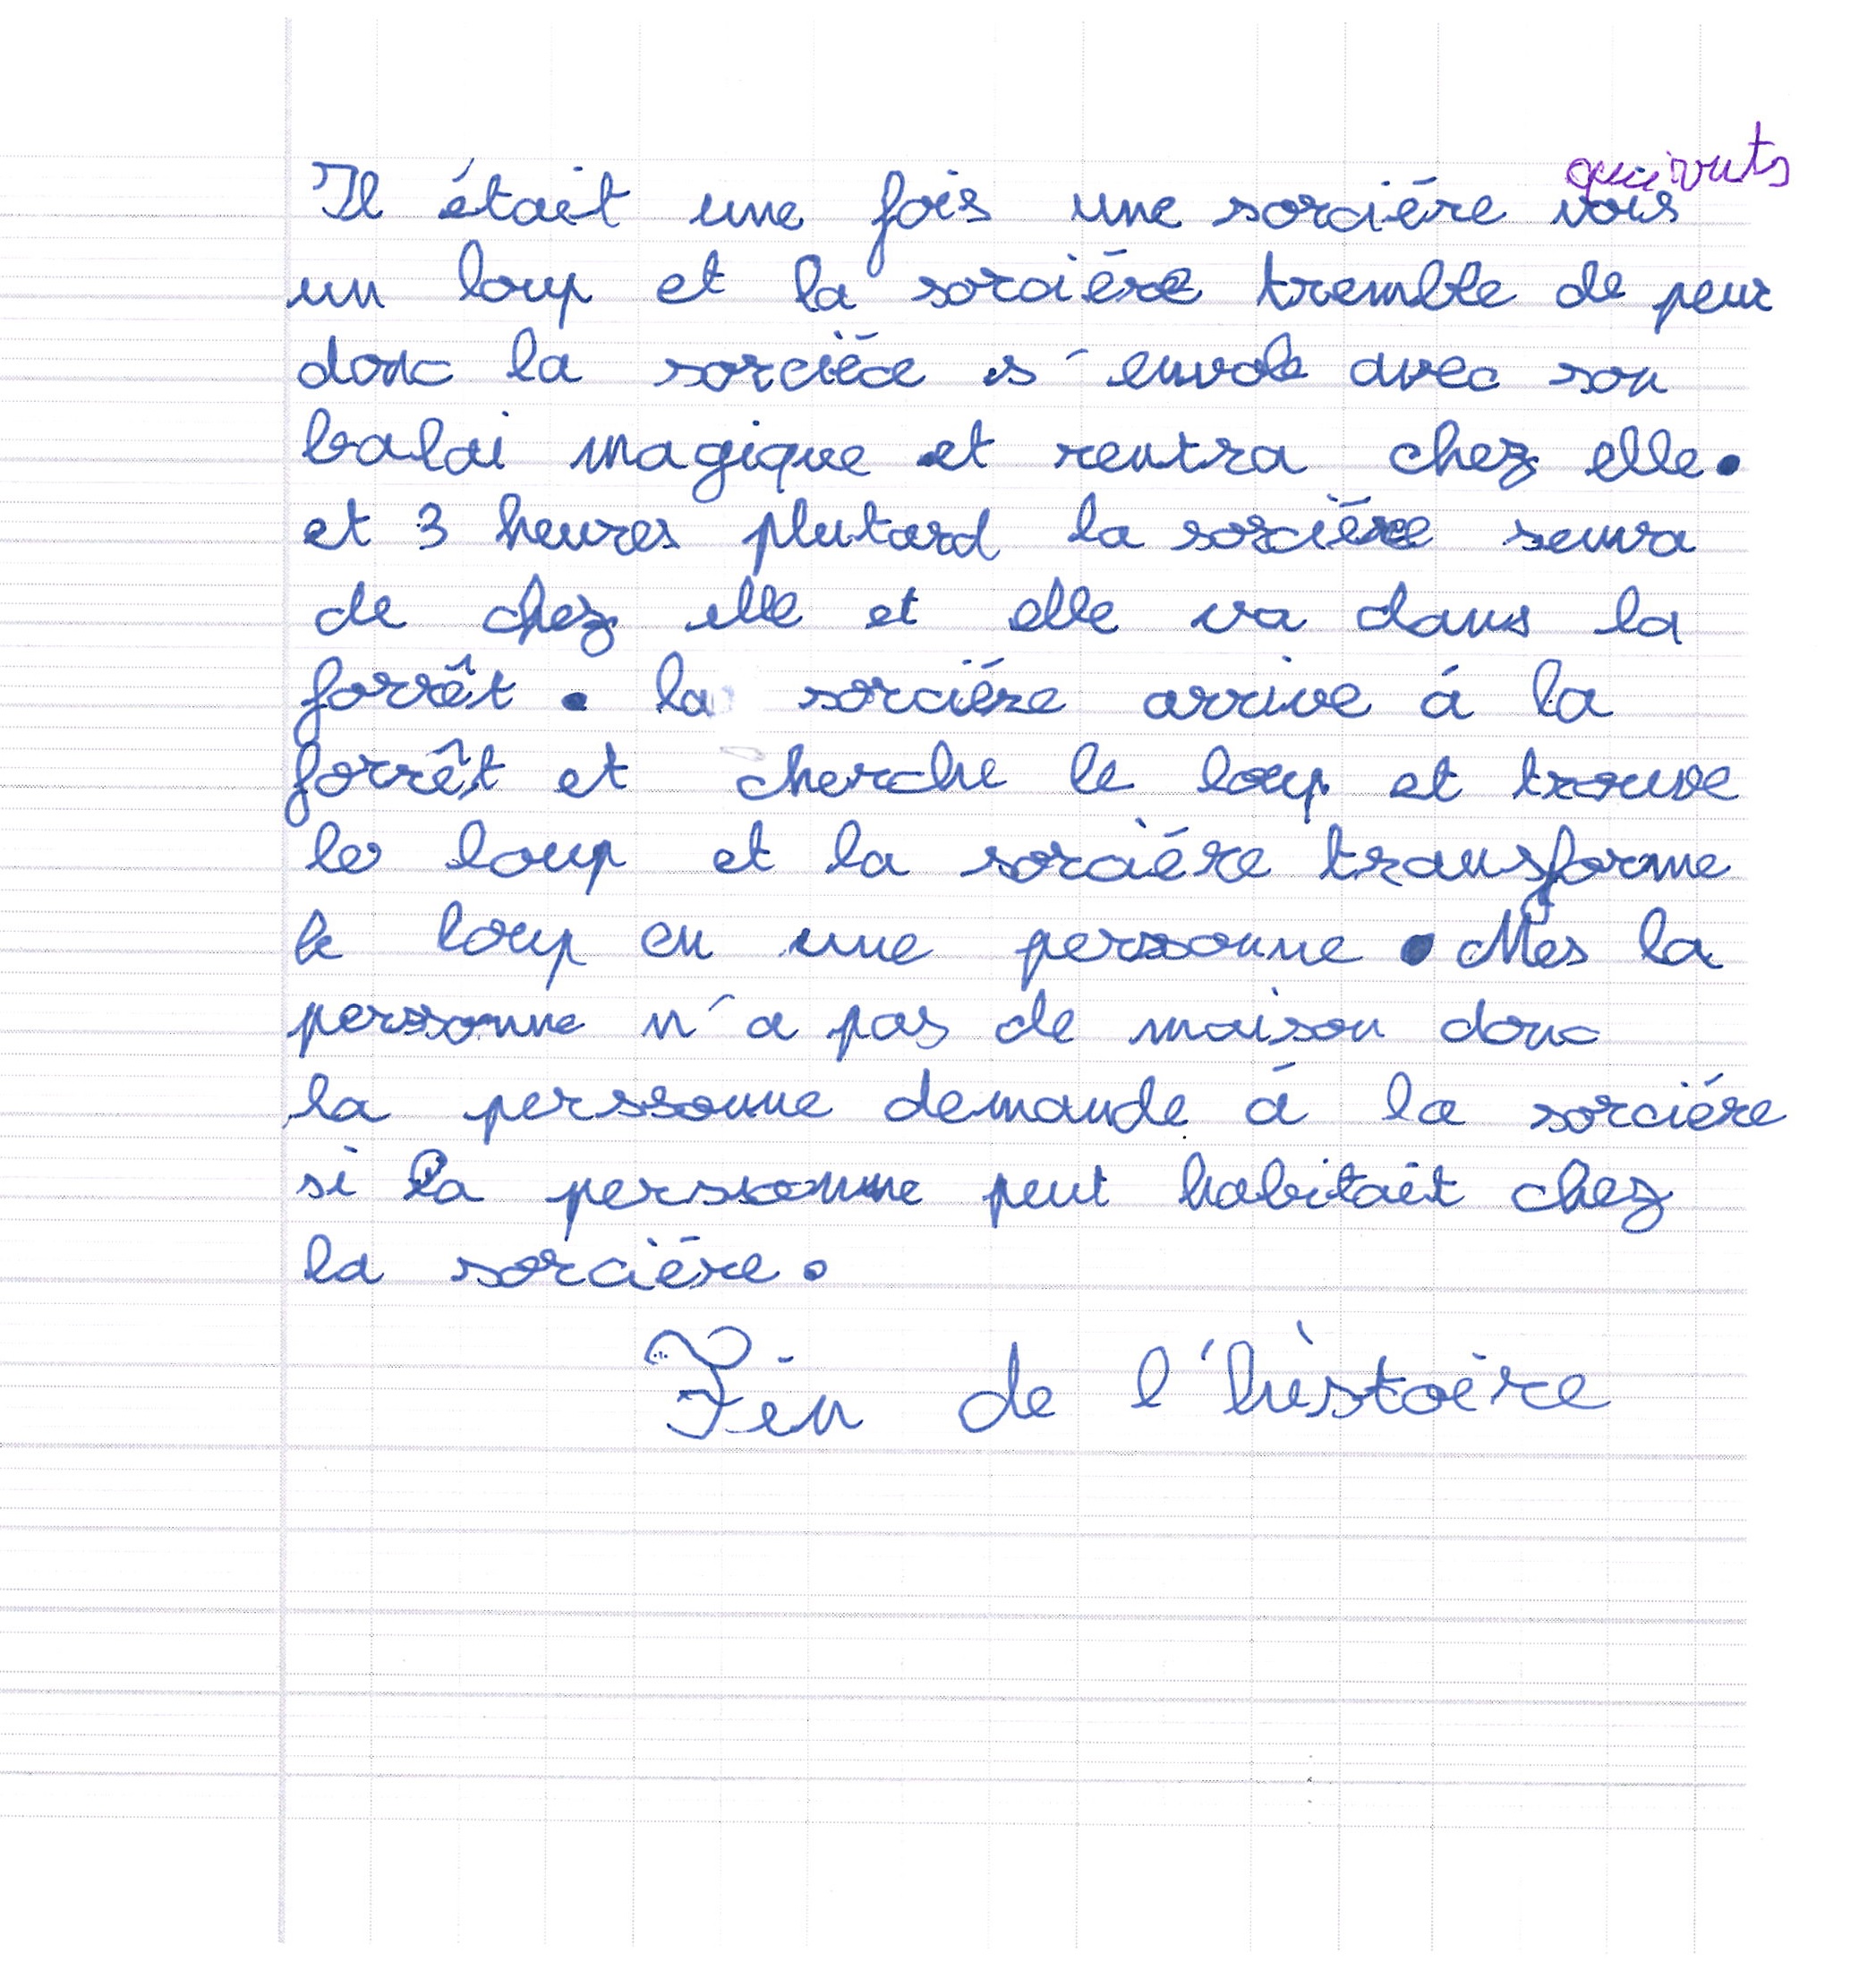 quivuts
Il était une fois une sorciére vois
un loup et la sorciére tremble de peur
donc la sorciére s'envole avec son
balai magique et rentra chez elle.
et 3 heures plutard la sorciére senva
de chez elle et elle va dans la
forrêt. la sorciére arrive á la
forrêt et cherche le loup et trouve
le loup et la sorciére transforme
le loup en une personne. Mes la
perssonne n'a pas de maison donc
la perssonne demande á la sorciére
si la perssonne peut habitait chez
la sorciére.
Fin de l'histoire